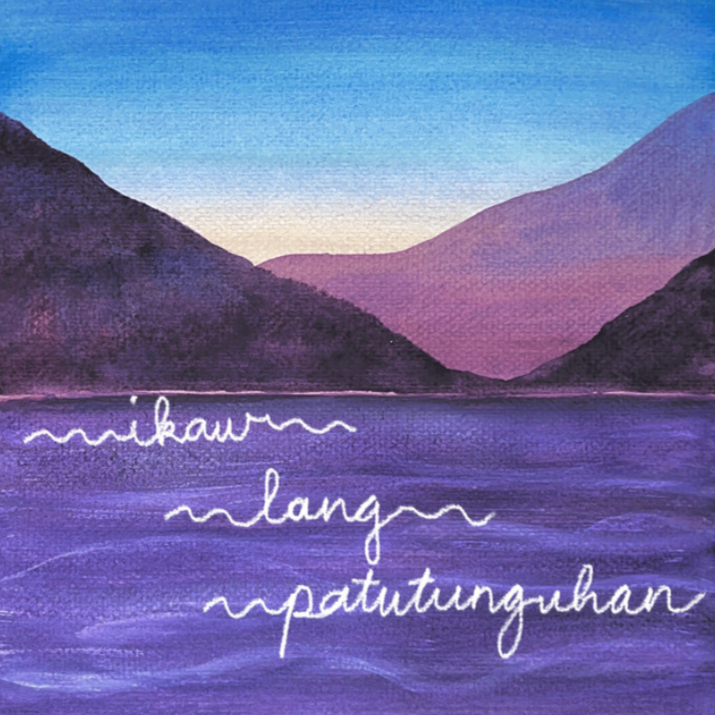 ikaw
lang
patutunguhan